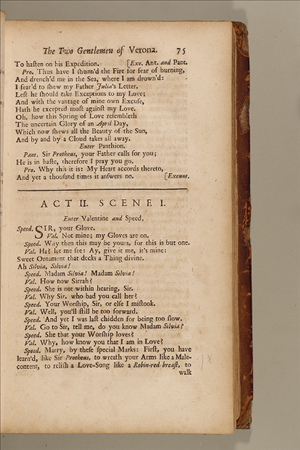 The Two Gentlemen of Verona. 75
To hasten on his Expedition. [Exe. Ant. and Pant.
Pro. Thus have I shunn'd the Fire for fear of burning,
And drench'd me in the Sea, where I am drown'd:
I fear'd to shew my Father Julia's Letter,
Lest he should take Exceptions to my Love;
And with the vantage of mine own Excuse,
Hath he excepted most against my Love.
Oh, how this Spring of Love resembleth
The uncertain Glory of an April Day,
Which now shews all the Beauty of the Sun,
And by and by a Cloud takes all away.
Enter Panthion.
Pant. Sir Protheus, your Father calls for you;
He is in haste, therefore I pray you go.
Pro. Why this it is! My Heart accords thereto,
And yet a thousand times it answers no. [Exeunt.
ACT II. SCENE I.
Enter Valentine and Speed.
Speed. SIR, your Glove.
Val. Not mine: my Gloves are on.
Speed. Why then this may be yours, for this is but one.
Val. Ha! let me see: Ay, give it me, it's mine:
Sweet Ornament that decks a Thing divine.
Ah Silvia, Silvia!
Speed. Madam Silvia! Madam Silvia!
Val. How now Sirrah?
Speed. She is not within hearing, Sir.
Val. Why Sir, who bad you call her?
Speed. Your Worship, Sir, or else I mistook.
Val. Well, you'll still be too forward.
Speed. And yet I was last chidden for being too slow.
Val. Go to Sir, tell me, do you know Madam Silvia?
Speed. She that your Worship loves?
Val. Why, how know you that I am in Love?
Speed. Marry, by these special Marks: First, you have
learn'd, like Sir Protheus, to wreath your Arms like a Male-
content, to relish a Love-Song like a Robin-red breast, to
walk